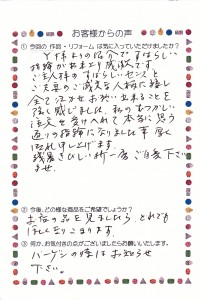 お客様からの声
① 今回の 作目・リフォーム は気に入っていただけましたか？
Y様よりの紹介ですばらしい
指輪が出来上り感激です。
ご主人様のすばらしいセンスと
ご夫妻のご誠実な人柄に接し
全ておまかせお願い出来ることを
強く感じました。私のむつかしい
注文を受け入れて本当に思う
通りの指輪になりました事 厚く
お礼申し上げます
残暑きびしい折一層ご自愛下さい
ませ。
② 今後、どの様な商品をご希望でしょうか？
お店の品を見ましたら、どれでも
ほしくなりこまります。
③ 何か、お気付きの点がございましたらお願いいたします。
バーゲンの時はお知らせ
下さい。